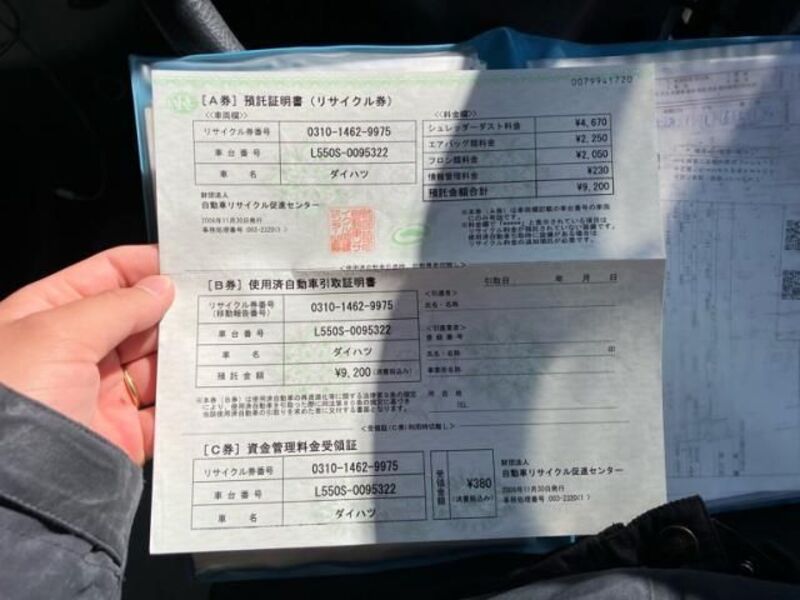 0079941720
[A券] 預託証明書 (リサイクル券)
<<車両欄>>
リサイクル券番号 0310-1462-9975
車台番号 L550S-0095322
車名 ダイハツ
<<料金欄>>
シュレッダーダスト料金 ¥4,670
エアバッグ類料金 ¥2,250
フロン類料金 ¥2,050
情報管理料金 ¥230
預託金額合計 ¥9,200
財団法人
自動車リサイクル促進センター
2006年11月30日発行
事務処理番号 003-2320(1)
※本券(A券)は車両欄記載の車台番号の車両
にのみ有効です。
[B券] 使用済自動車引取証明書
引取日 年 月 日
リサイクル券番号
(移動報告番号) 0310-1462-9975
車台番号 L550S-0095322
車名 ダイハツ
預託金額 ¥9,200(消費税込み)
<引渡者>
氏名・名称
<引取業者>
登録番号
氏名・名称 印
事業所名称
所在地
TEL
<受領証(C券)利用時切離し>
[C券] 資金管理料金受領証
リサイクル券番号 0310-1462-9975
車台番号 L550S-0095322
車名 ダイハツ
受領金額 ¥380
(消費税込み)
財団法人
自動車リサイクル促進センター
2006年11月30日発行
事務処理番号 003-2320(1)